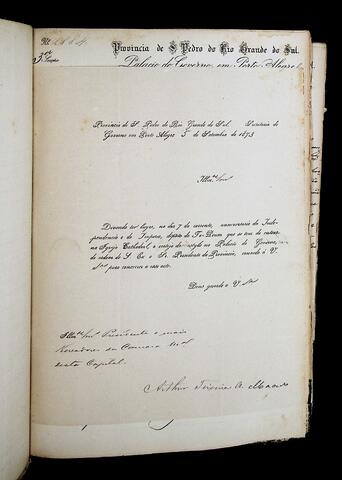 Provincia de S. Pedro do Rio Grande do Sul.
3ª Secção
Palacio do Governo em Porto Alegre
Provincia de S. Pedro do Rio Grande do Sul. Secretaria do
Governo em Porto Alegre 3 de Setembro de 1873
Illmo Snr
Devendo ter lugar, no dia 7 do corrente, anniversario da Inde-
pendencia e do Imperio, depois do Te-Deum que se tem de cantar
na Igreja Cathedral, o cortejo do estylo no Palacio do Governo,
de ordem de S. Ex. o Sr. Presidente da Provincia, convido a V.
Sa. para concorrer a esse acto.
Deus guarde a V. Sa.
Illmo Snr Presidente e mais
Vereadores da Camara Mal
desta Capital.
Arthur Teixeira